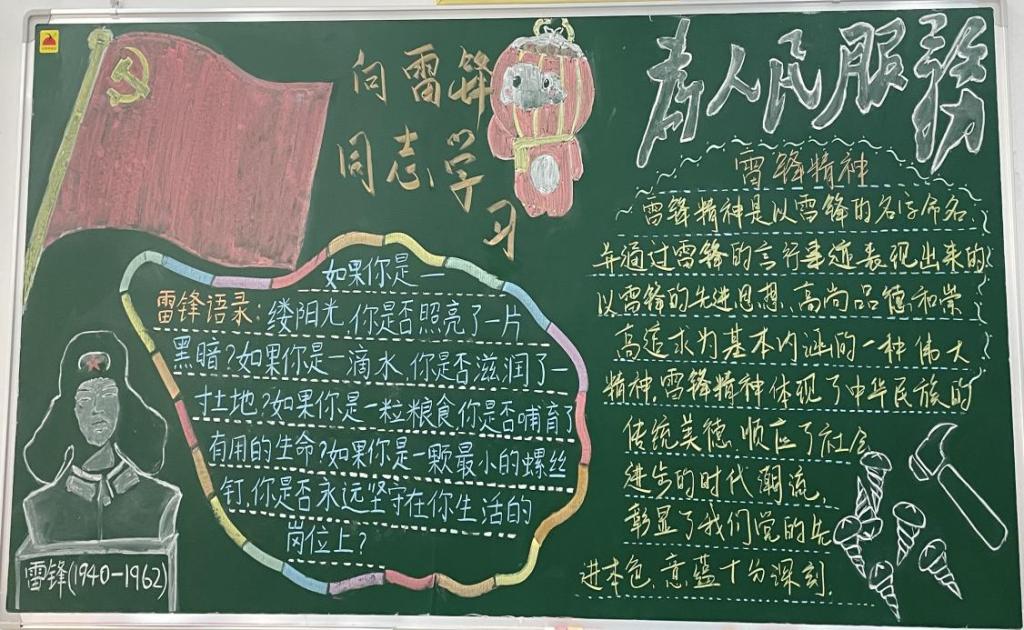 向雷锋
同志学
习
为人民服务
如果你是一
雷锋语录:缕阳光,你是否照亮了一片
黑暗?如果你是一滴水,你是否滋润了一
寸土地?如果你是一粒粮食你是否哺育了
有用的生命?如果你是一颗最小的螺丝
钉,你是否永远坚守在你生活的
岗位上?
雷锋(1940-1962)
雷锋精神
雷锋精神是以雷锋的名字命名,
并通过雷锋的言行事迹表现出来的
以雷锋的先进思想、高尚品德和崇
高追求为基本内涵的一种伟大
精神,雷锋精神体现了中华民族的
传统美德,顺应了社会
进步的时代潮流,
彰显了我们党的先
进本色,意蕴十分深刻.